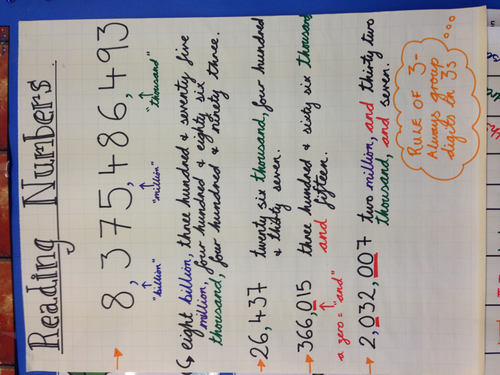 Reading Numbers
→ 8,375,486,493
"billion" "million" "thousand"
eight billion, three hundred & seventy five
million, four hundred & eighty six
thousand, four hundred & ninety three.
→ 26,437 twenty six thousand, four hundred
& thirty seven.
→ 366,015 three hundred & sixty six thousand
and fifteen.
a zero = "and"
→ 2,032,007 two million, and thirty two
thousand, and seven.
RULE OF 3 -
Always group
digits in 3s